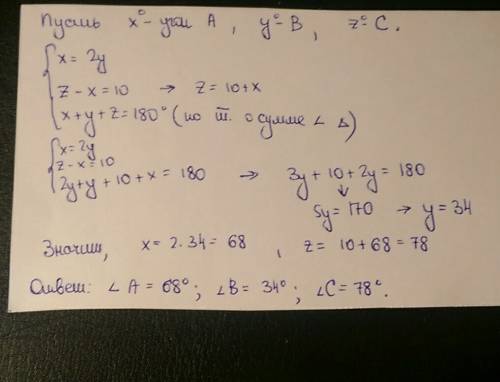 Пусть x° - угол A, y° - B, z° - C.
x = 2y
z - x = 10 → z = 10 + x
x + y + z = 180° (по т. о сумме ∠ Δ)
x = 2y
z - x = 10
2y + y + 10 + x = 180 → 3y + 10 + 2y = 180
↓
5y = 170 → y = 34
Значит, x = 2 · 34 = 68, z = 10 + 68 = 78
Ответ: ∠A = 68°; ∠B = 34°; ∠C = 78°.